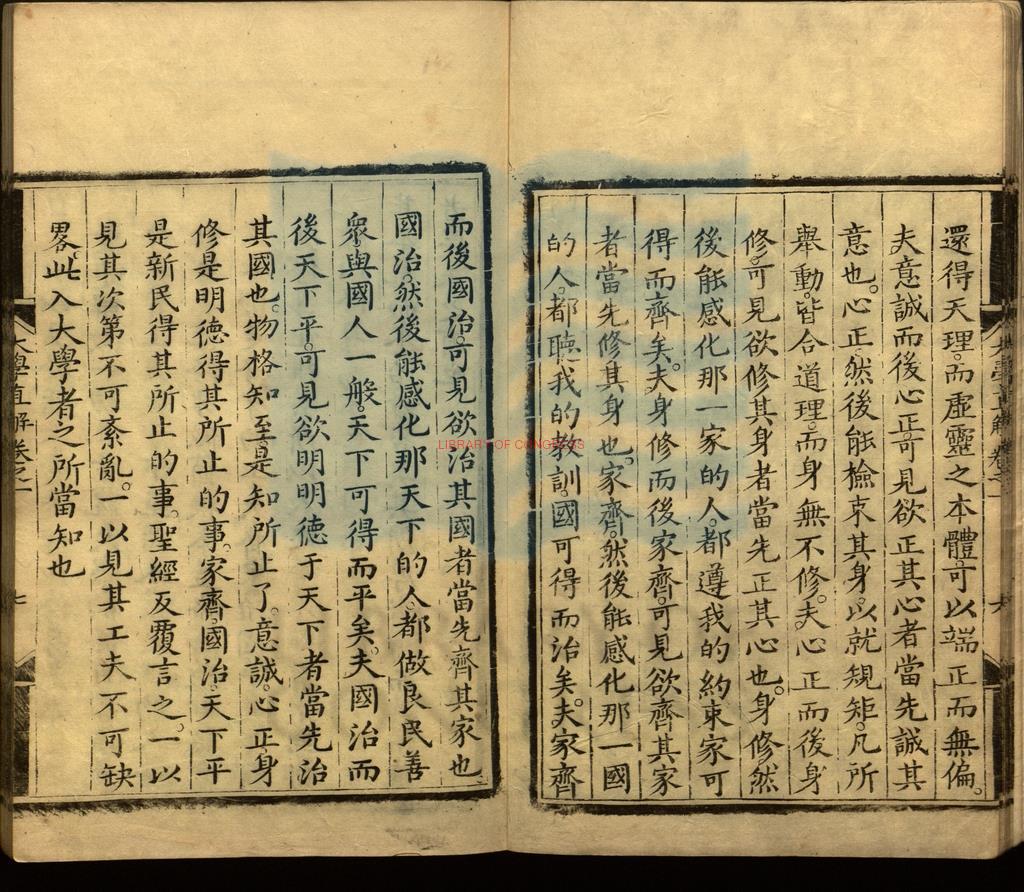 還得天理。而虛靈之本體。可以端正而無偏。
夫意誠而後心正。可見欲正其心者當先誠其
意也。心正然後能檢束其身。以就規矩。凡所
舉動。皆合道理。而身無不修。夫心正而後身
修。可見欲修其身者當先正其心也。身修然
後能感化那一家的人。都遵我的約束家可
得而齊矣。夫身修而後家齊。可見欲齊其家
者當先修其身也。家齊。然後能感化那一國
的人。都聽我的教訓。國可得而治矣。夫家齊
而後國治。可見欲治其國者當先齊其家也
國治。然後能感化那天下的人。都做良民善
衆。與國人一般。天下可得而平矣。夫國治而
後天下平。可見欲明明德于天下者當先治
其國也。物格知至。是知所止了。意誠。心正身
修是明德得其所止的事。家齊。國治。天下平
是新民得其所止的事。聖經反覆言之。一以
見其次第不可紊亂。一以見其工夫不可缺
畧。此入大學者之所當知也
大學直解卷之一
七
LIBRARY OF CONGRESS